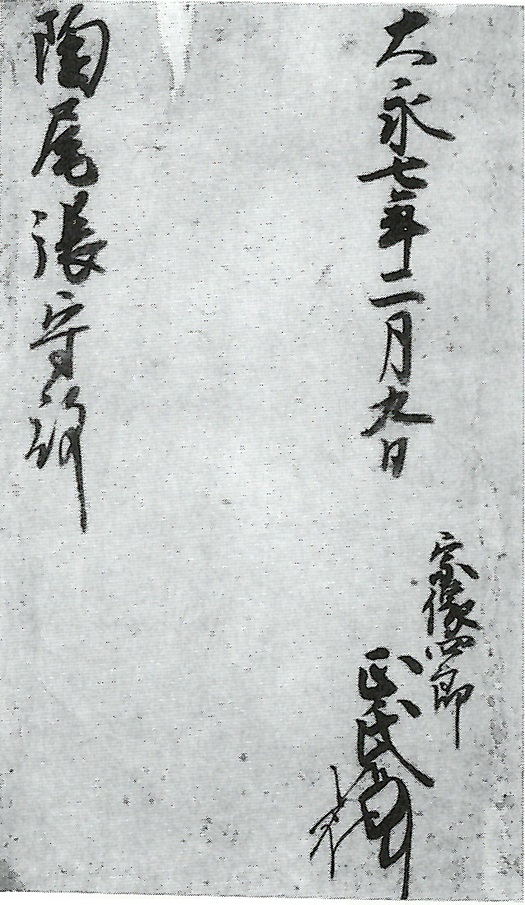 大永七年二月九日
宗像四郎
正氏
陶尾張守殿